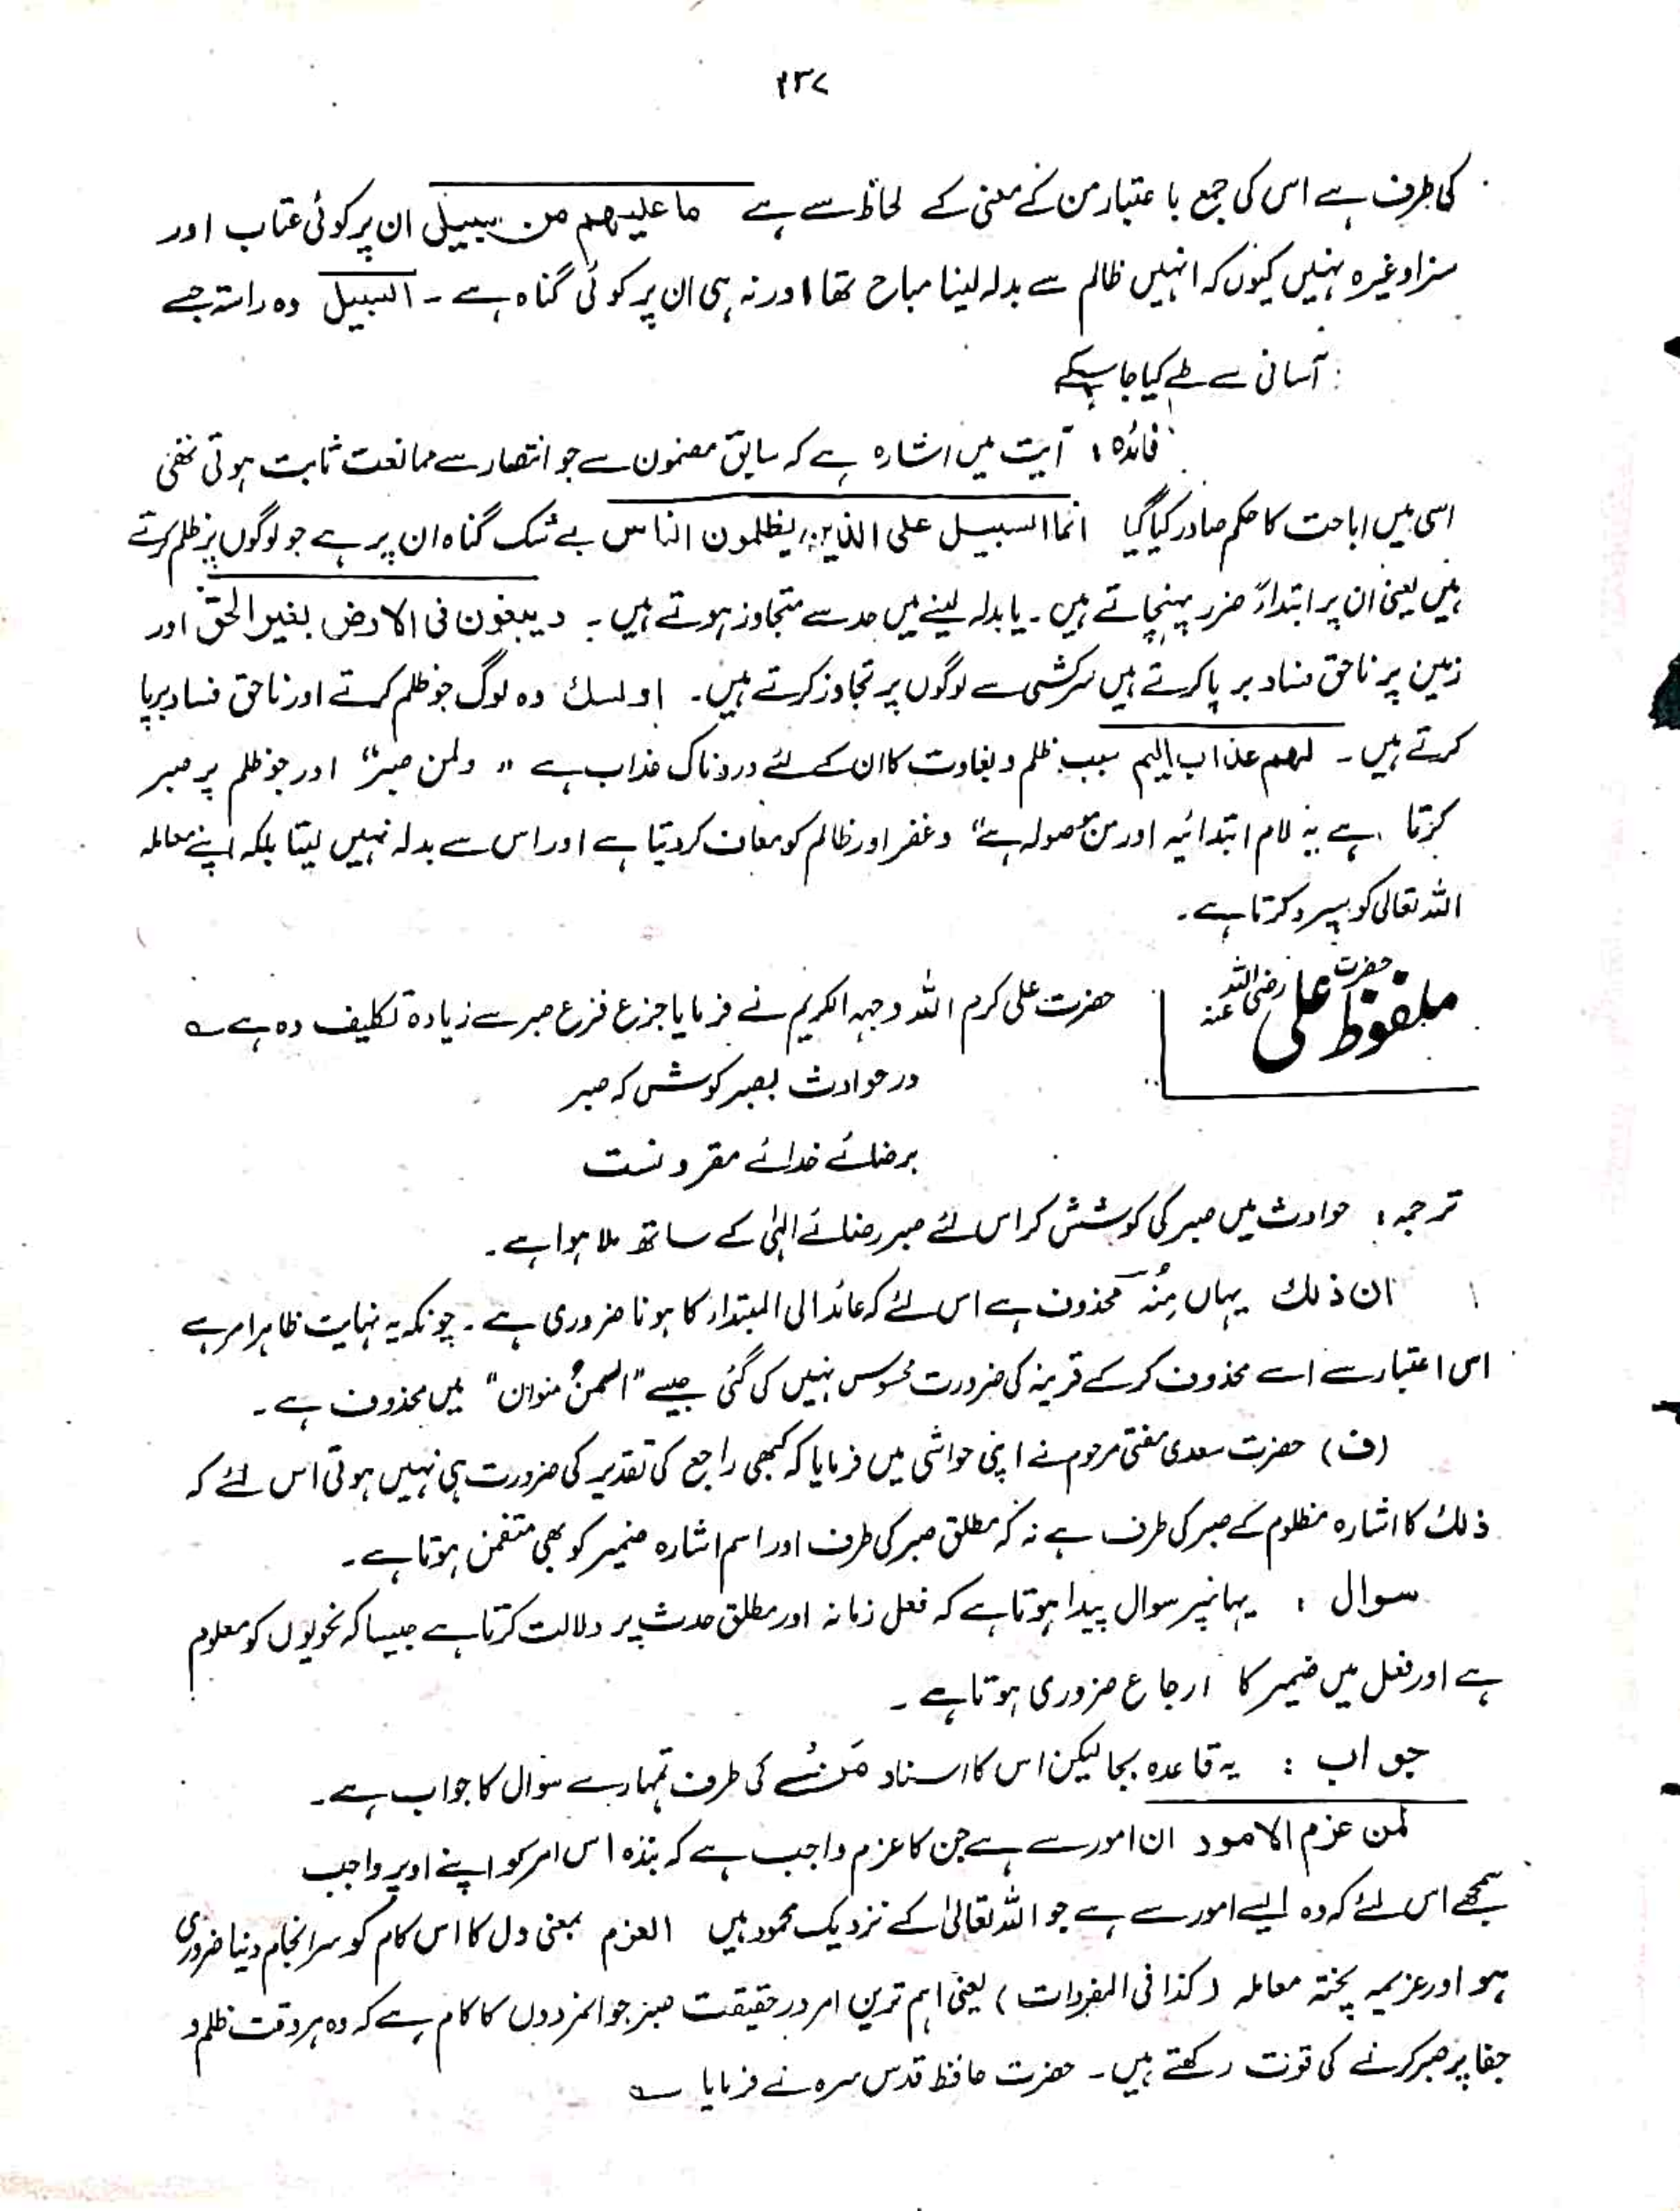 ۲۳۷
کی طرف ہے اس کی جمع با عتبار من کے معنی کے لحاظ سے ہے ما علیهم من سبیل ان پر کوئی عتاب اور
سزا وغیرہ نہیں کیوں کہ انہیں ظالم سے بدلہ لینا مباح تھا اور نہ ہی ان پر کوئی گناہ ہے ۔ السبیل وہ راستہ جسے
آسانی سے طے کیا جا سکے
فائدہ : آیت میں اشارہ ہے کہ سابق مضمون سے جو انتصار سے ممانعت ثابت ہوتی تھی
اسی میں اباحت کا حکم صادر کیا گیا انما السبیل علی الذین یظلمون الناس بے شک گناہ ان پر ہے جو لوگوں پر ظلم کرتے
ہیں یعنی ان پر ابتداءً ضرر پہنچاتے ہیں ۔ یا بدلہ لینے میں حد سے متجاوز ہوتے ہیں ۔ و یبغون فی الارض بغیر الحق اور
زمین پر ناحق فساد بر پا کرتے ہیں سرکشی سے لوگوں پر تجاوز کرتے ہیں ۔ اولئک وہ لوگ جو ظلم کرتے اور ناحق فساد برپا
کرتے ہیں ۔ لهم عذاب الیم سبب ظلم و بغاوت کا ان کے لئے دردناک عذاب ہے " ولمن صبر" اور جو ظلم پر صبر
کرتا ہے یہ لام ابتدائیہ اور من موصولہ ہے" وغفر اور ظالم کو معاف کردیتا ہے اور اس سے بدلہ نہیں لیتا بلکہ اپنے معاملہ
اللہ تعالی کو سپرد کرتا ہے ۔
ملفوظ حضرت علی رضی اللہ عنہ
حضرت علی کرم اللہ وجہہ الکریم نے فرمایا جزع فزع صبر سے زیادہ تکلیف دہ ہے ؎
در حوادث بصبر کوش کہ صبر
برضائے خدائے مقرونست
ترجمہ : حوادث میں صبر کی کوشش کر اس لئے صبر رضائے الہٰی کے ساتھ ملا ہوا ہے ۔
ان ذلک یہاں مِنْہُ محذوف ہے اس لئے کہ عائد الی المبتداء کا ہونا ضروری ہے ۔ چونکہ یہ نہایت ظاہر امر ہے
اس اعتبار سے اسے محذوف کرکے قرینہ کی ضرورت محسوس نہیں کی گئی جیسے "السمنُ منوان" میں محذوف ہے ۔
(ف) حضرت سعدی مفتی مرحوم نے اپنی حواشی میں فرمایا کہ کبھی راجع کی تقدیر کی ضرورت ہی نہیں ہوتی اس لئے کہ
ذلک کا اشارہ مظلوم کے صبر کی طرف ہے نہ کہ مطلق صبر کی طرف اور اسم اشارہ ضمیر کو بھی متضمن ہوتا ہے ۔
سوال : یہانپر سوال پیدا ہوتا ہے کہ فعل زمانہ اور مطلق حدث پر دلالت کرتا ہے جیسا کہ نحویوں کو معلوم
ہے اور فعل میں ضمیر کا ارجاع ضروری ہوتا ہے ۔
جواب : یہ قاعدہ بجا لیکن اس کا اسناد کی طرف تمہارے سوال کا جواب ہے ۔
لمن عزم الامور ان امور سے ہے جن کا عزم واجب ہے کہ بندہ اس امر کو اپنے اوپر واجب
سمجھے اس لئے کہ وہ ایسے امور سے ہے جو اللہ تعالیٰ کے نزدیک محمود ہیں العزم بمعنی دل کا اس کام کو سرانجام دینا ضروری
ہو اور عزیمہ پختہ معاملہ (کذا فی المفردات) یعنی اہم ترین امر درحقیقت صبر جوانمردوں کا کام ہے کہ وہ ہر وقت ظلم و
جفا پر صبر کرنے کی قوت رکھتے ہیں ۔ حضرت حافظ قدس سرہ نے فرمایا ؎